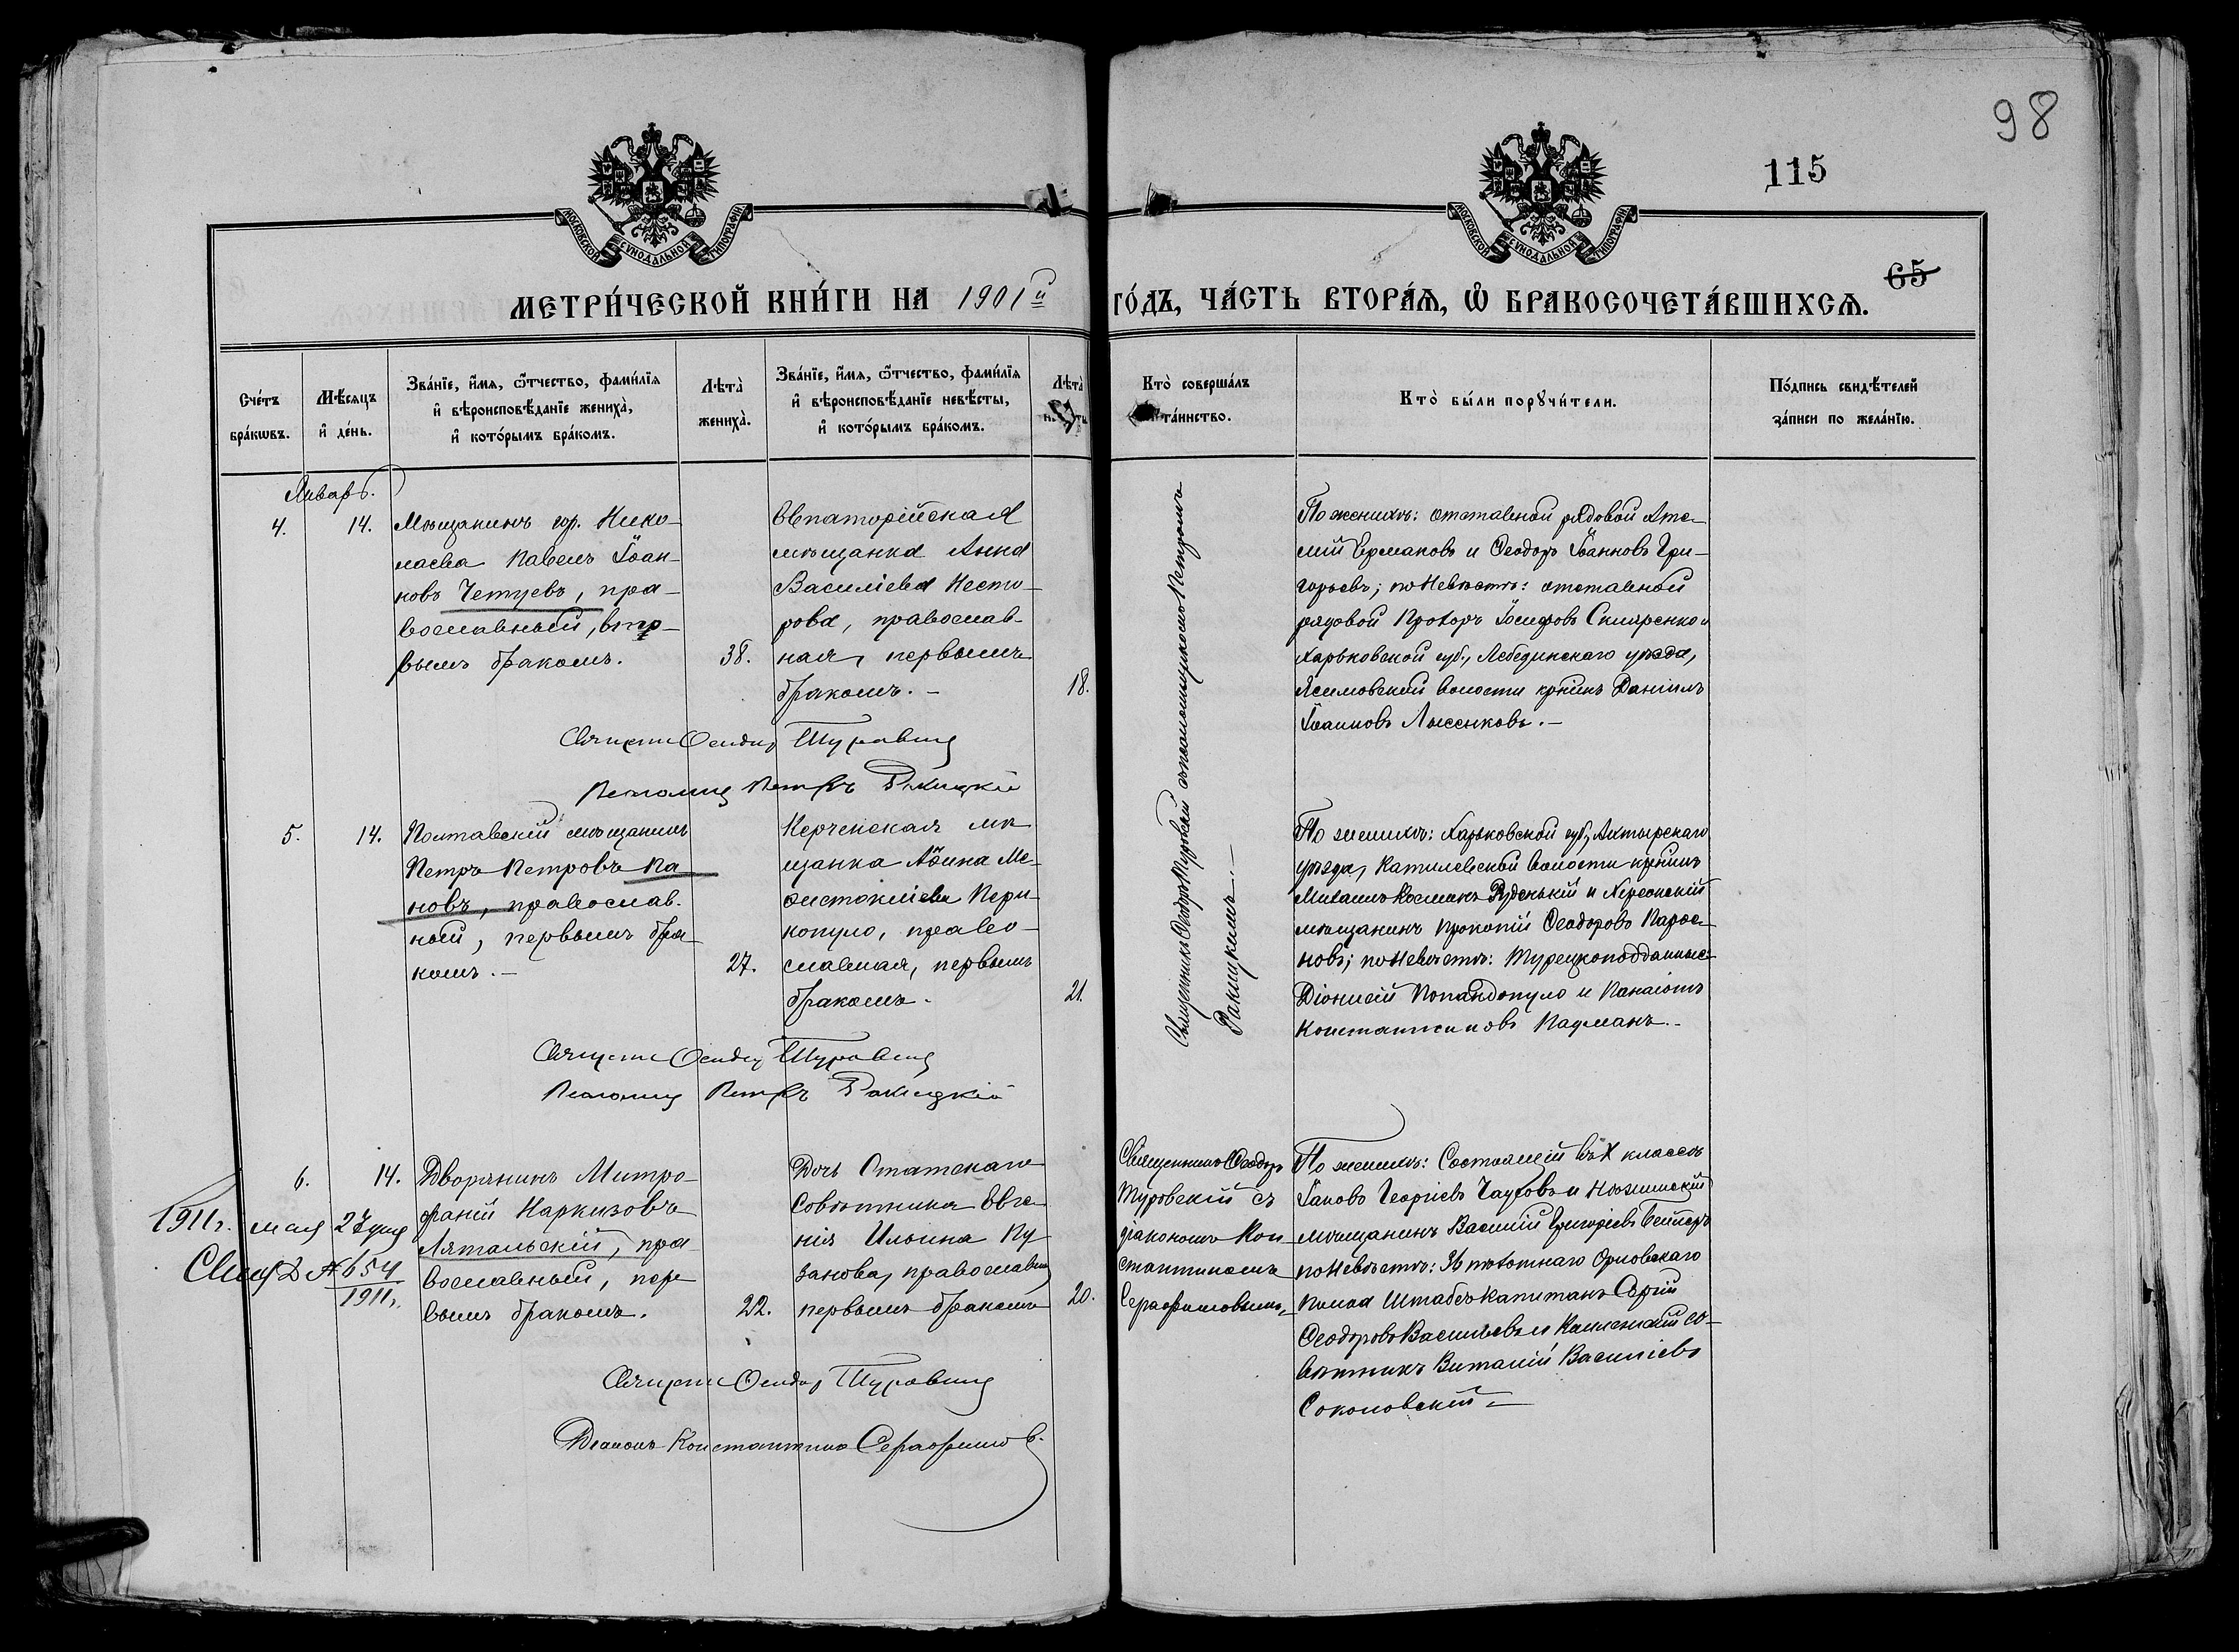 98
115
65
МОСКОВСКОЙ СѴНОДАЛЬНОЙ ТИПОГРАФІИ
МОСКОВСКОЙ СѴНОДАЛЬНОЙ ТИПОГРАФІИ
МЕТРИ́ЧЕСКОЙ КНИ́ГИ НА 1901й
ГО́ДЪ, ЧА́СТЬ ВТОРА́Ѧ, Ѽ БРАКОСОЧЕТА́ВШИХСѦ.
Сче́тъ
бра́кѡвъ.
Мѣ́сѧцъ
и҆ де́нь.
Зва́нїе, и҆́мѧ, ѻ҆́тчество, фами́лїѧ
и҆ вѣроисповѣ́данїе жениха̀,
и҆ кото́рымъ бра́комъ.
Лѣта̀
жениха̀.
Зва́нїе, и҆́мѧ, ѻ҆́тчество, фами́лїѧ
и҆ вѣроисповѣ́данїе невѣ́сты,
и҆ кото́рымъ бра́комъ.
Лѣта̀
Кто̀ соверша́лъ
та́инство.
Кто̀ бы́ли порꙋчи́тели.
По́дпись свидѣ́телей
за́писи по жела́нїю.
Январь.
4.
14.
Мѣщанинъ гор. Нико-
лаева Павелъ Іоан-
новъ Четуевъ, пра-
вославный, вто-
вымъ бракомъ.
38.
Евпаторійская
мѣщанка Анна
Василіева Несто-
рова, православ-
ная, первымъ
бракомъ. -
18.
Священникъ Ѳеодоръ Туровскій съ псаломщикомъ Петромъ
Ракицкимъ.-
По женихѣ: отставной рядовой Арте-
мій Ермаковъ и Ѳеодоръ Іоанновъ Гри-
горьевъ; по невѣстѣ: отставной
рядовой Прохоръ Іосифовъ Скляренко и
Харьковской губ., Лебединскаго уѣзда,
волости крнинъ Даніилъ
Іоанновъ Лысенковъ. -
Священ. Ѳеодоръ Туровскій
Псаломщ. Петръ Ракицкій
5.
14.
Полтавскій мѣщанинъ
Петръ Петровъ Па-
новъ, православ-
ный, первымъ бра-
комъ. -
27.
Керченская мѣ-
щанка Аѳина Ѳе-
мистоклісва Пери-
копуло, право-
славная, первымъ
бракомъ.
21.
По женихѣ: Харьковской губ., Ахтырскаго
уѣзда, волости крнинъ
Михаилъ Косминъ Руденькій и Херсонскій
мѣщанинъ Прокопій Ѳеодоровъ
новъ; по невѣстѣ: Турецкоподданные
Діонисій Попандопуло и Панаіотъ
Константиновъ
Священ. Ѳеодоръ Туровскій
Псаломщ. Петръ Ракицкій
6.
14.
Дворянинъ Митро-
фаній Наркизовъ
Лятальскій, пра-
вославный, пер-
вымъ бракомъ.
22.
1911г. мая 27 дня
№ 654
1911г.
Дочь Статскаго
Совѣтника Евге-
нія Ильина Пу-
занова, православная
первымъ бракомъ
20.
Священникъ Ѳеодоръ
Туровскій съ
діакономъ Кон-
стантиномъ
Серафимовымъ.
По женихѣ: Состоящій въ X классѣ
Іаковъ Георгіевъ Чауровъ и
мѣщанинъ Василій Григоріевъ
по невѣстѣ: 36 пѣхотнаго Орловскаго
полка Штабсъ-капитанъ
Ѳеодоровъ Васильевъ и Коллежскій со-
вѣтникъ Виталій Василіевъ
Соколовскій. -
Священ. Ѳеодоръ Туровскій
Діаконъ Константинъ Серафимовъ.